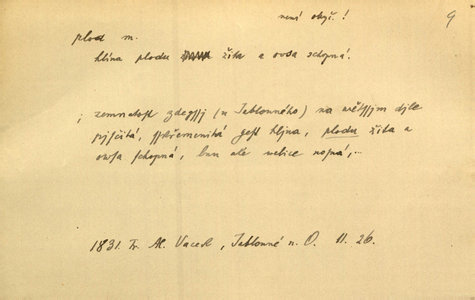 není obyč.! 9
plod m.
hlína plodu žita a ovsa schopná.
; zemnatost zdegssj (u Jablonného) na wětssjm djle
pjsčitá, skřemenitá gest hljna, plodu žita a
owsa schopná, ale welice nosná,..
1831. Fr. Al. Vacek, Jablonné n. O. II. 26.